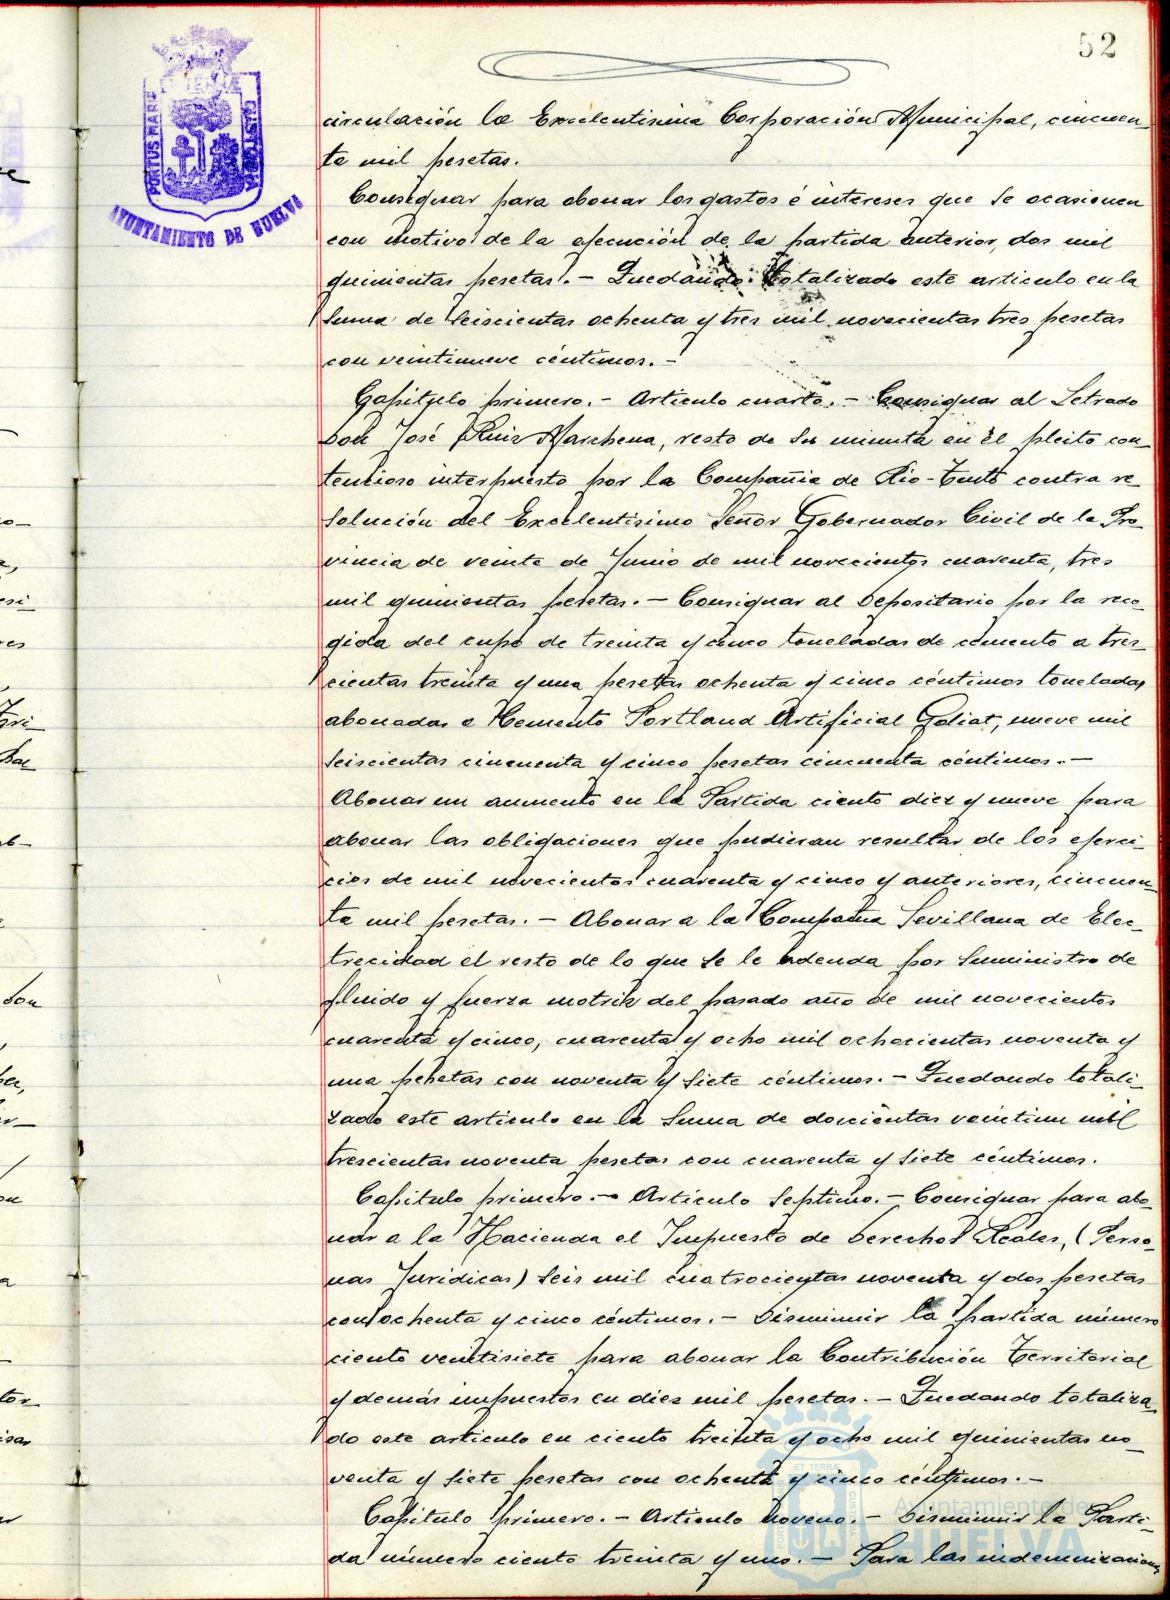 52
PORTUS MARIS
ET TERRÆ
AYUNTAMIENTO DE HUELVA
circulación la Excelentisima Corporación Municipal, cincuen-
ta mil pesetas.
Consignar para abonar los gastos é intereses que se ocasionen
con motivo de la ejecución de la partida anterior, dos mil
quinientas pesetas.- Quedando totalizado este articulo en la
suma de seiscientas ochenta y tres mil novecientas tres pesetas
con veintinueve céntimos.-
Capitulo primero.- Articulo cuarto.- Consignar al Letrado
Don José Ruiz Marchena, resto de su minuta en el pleito con-
tencioso interpuesto por la Compañia de Rio-Tinto contra re-
solución del Excelentisimo Señor Gobernador Civil de la Pro-
vincia de veinte de Junio de mil novecientos cuarenta, tres
mil quinientas pesetas.- Consignar al Depositario por la reco-
gida del cupo de treinta y cinco toneladas de cemento a tres-
cientas treinta y una pesetas ochenta y cinco céntimos toneladas
abonadas a Cemento Portland Artificial Goliat, nueve mil
seiscientas cincuenta y cinco pesetas cincuenta céntimos.-
Abonar un aumento en la Partida ciento diez y nueve para
abonar las obligaciones que pudieran resultar de los ejerci-
cios de mil novecientos cuarenta y cinco y anteriores, cincuen-
ta mil pesetas.- Abonar a la Compañia Sevillana de Elec-
trecidad el resto de lo que se le adeuda por suministro de
fluido y fuerza motriz del pasado año de mil novecientos
cuarenta y cinco, cuarenta y ocho mil ochocientas noventa y
una pesetas con noventa y siete céntimos.- Quedando totali-
zado este articulo en la suma de doscientas veintiun mil
trescientas noventa pesetas con cuarenta y siete céntimos.
Capitulo primero.- Articulo septimo.- Consignar para abo-
nar a la Hacienda el Impuesto de Derechos Reales, (Perso-
nas Juridicas) seis mil cuatrocientas noventa y dos pesetas
con ochenta y cinco céntimos.- Disminuir la partida número
ciento veintisiete para abonar la Contribución Territorial
y demás impuestos en diez mil pesetas.- Quedando totaliza-
do este articulo en ciento treinta y ocho mil quinientas no-
venta y siete pesetas con ochenta y cinco céntimos.-
Capitulo primero.- Articulo noveno.- Disminuir la Parti-
da número ciento treinta y uno.- Para las indemnizaciones
Ayuntamiento de
HUELVA